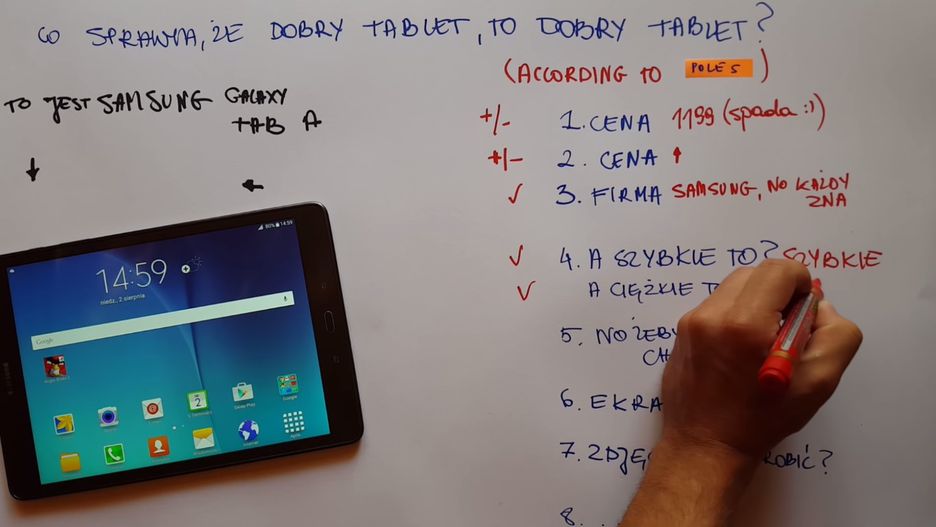 CO SPRAWIA, ŻE DOBRY TABLET, TO DOBRY TABLET?
(ACCORDING TO POLE 5)
TO JEST SAMSUNG GALAXY
TAB A
+/- 1. CENA 1199 (spada :))
+/- 2. CENA ↑
✓ 3. FIRMA SAMSUNG, NO KAŻDY
ZNA
✓ 4. A SZYBKIE TO? SZYBKIE
✓ A CIĘŻKIE
5. NO ŻEBY
6.
7.
8. . .
80% 14:59
14:59
niedz., 2 sierpnia
Google
2
Google Play
Google
Aplik.
SAMSUNG